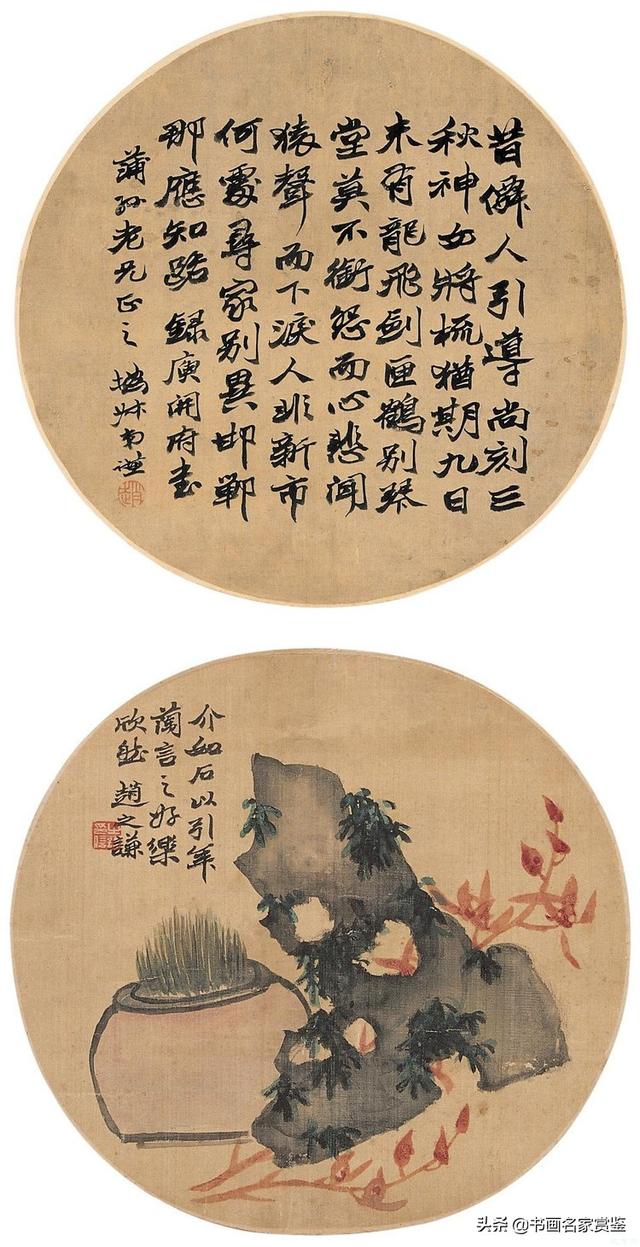 昔僊人引導尚刻三
秋神女將梳猶期九日
未有龍飛劍匣鶴別琴
堂莫不銜怨而心悲聞
猿聲而下淚人非新市
何處尋家別異邯鄲
那應知路 錄庾開府書
蒲孙老兄正之 撝叔弟謙
介如石以引年
蘭言之好樂
欣然 趙之謙
头条 @书画名家赏鉴